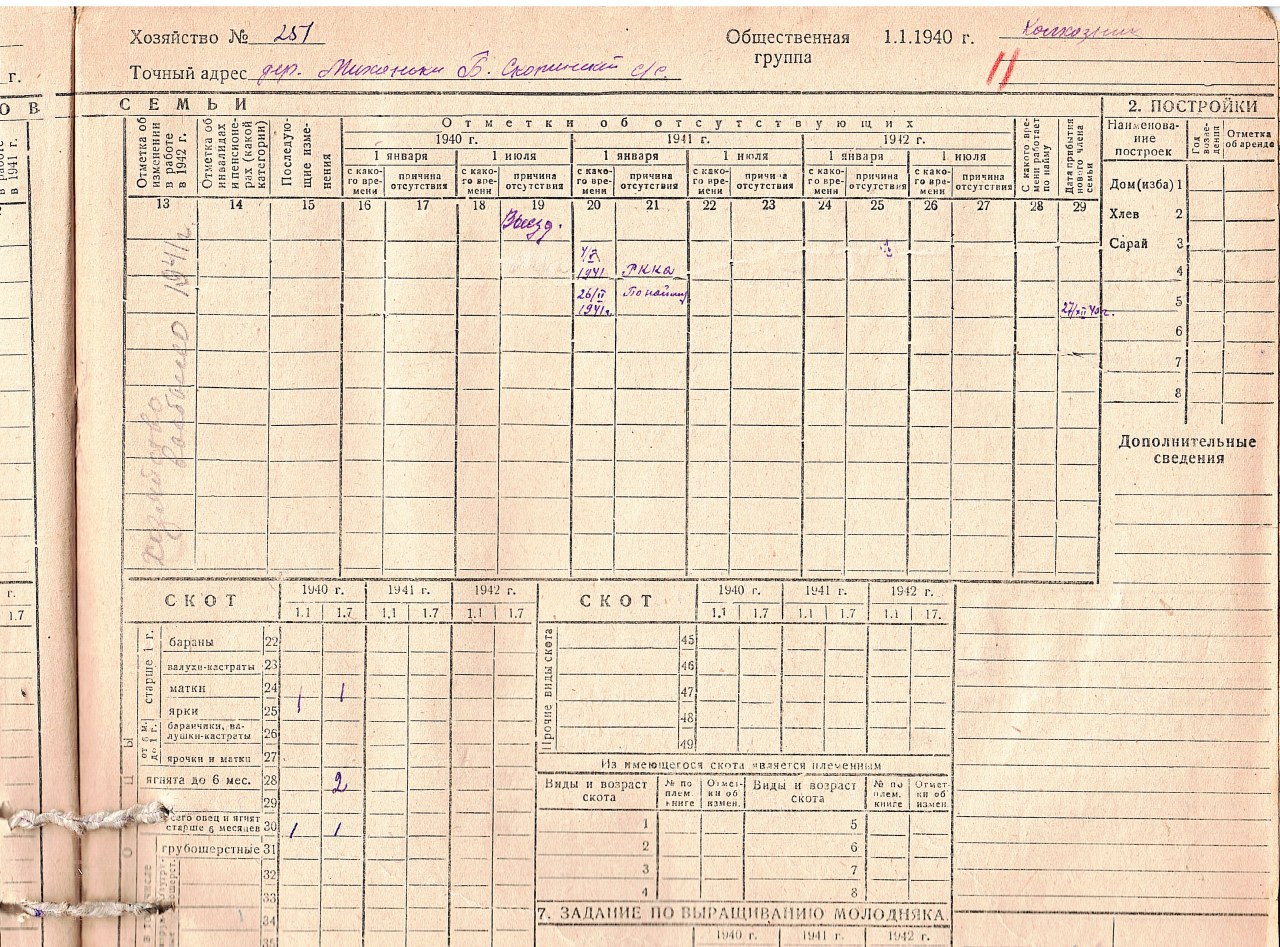 Хозяйство № 251
Общественная группа 1.1.1940 г. Колхозник
Точный адрес дер. Б. с/с.
11
г.
О В
С Е М Ь И
2. ПОСТРОЙКИ
Отметки об отсутствующих
1940 г. 1941 г. 1942 г.
1 января 1 июля 1 января 1 июля 1 января 1 июля
в работе в 1941 г.
Отметка об изменении в работе в 1942 г.
Отметка об инвалидах и пенсионерах (какой категории)
Последующие изменения
с какого времени причина отсутствия с какого времени причина отсутствия с какого времени причина отсутствия с какого времени причина отсутствия с какого времени причина отсутствия с какого времени причина отсутствия
С какого времени работает по найму
Дата прибытия нового члена семьи
Наименование построек
Год возведения
Отметка об аренде
13 14 15 16 17 18 19 20 21 22 23 24 25 26 27 28 29
Выезд.
1941 РККА
26/II 1941 г. По найму
27/XII 40 г.
хозяйство выбыло 1941 г.
Дом (изба) 1
Хлев 2
Сарай 3
4
5
6
7
8
Дополнительные сведения
г.
1.7
СКОТ 1940 г. 1941 г. 1942 г.
1.1 1.7 1.1 1.7 1.1 1.7
старше 1 г.
бараны 22
валухи-кастраты 23
матки 24 1 1
ярки 25
от 6 м. до 1 г.
баранчики, валушки-кастраты 26
ярочки и матки 27
ягнята до 6 мес. 28 2
29
Всего овец и ягнят старше 6 месяцев 30 1 1
грубошерстные 31
32
33
34
35
СКОТ 1940 г. 1941 г. 1942 г.
1.1 1.7 1.1 1.7 1.1 17.
Прочие виды скота
45
46
47
48
49
Из имеющегося скота является племенным
Виды и возраст скота № по плем. книге Отметки об измен. Виды и возраст скота № по плем. книге Отметки об измен.
1 5
2 6
3 7
4 8
7. ЗАДАНИЕ ПО ВЫРАЩИВАНИЮ МОЛОДНЯКА.
1940 г. 1941 г. 1942 г.